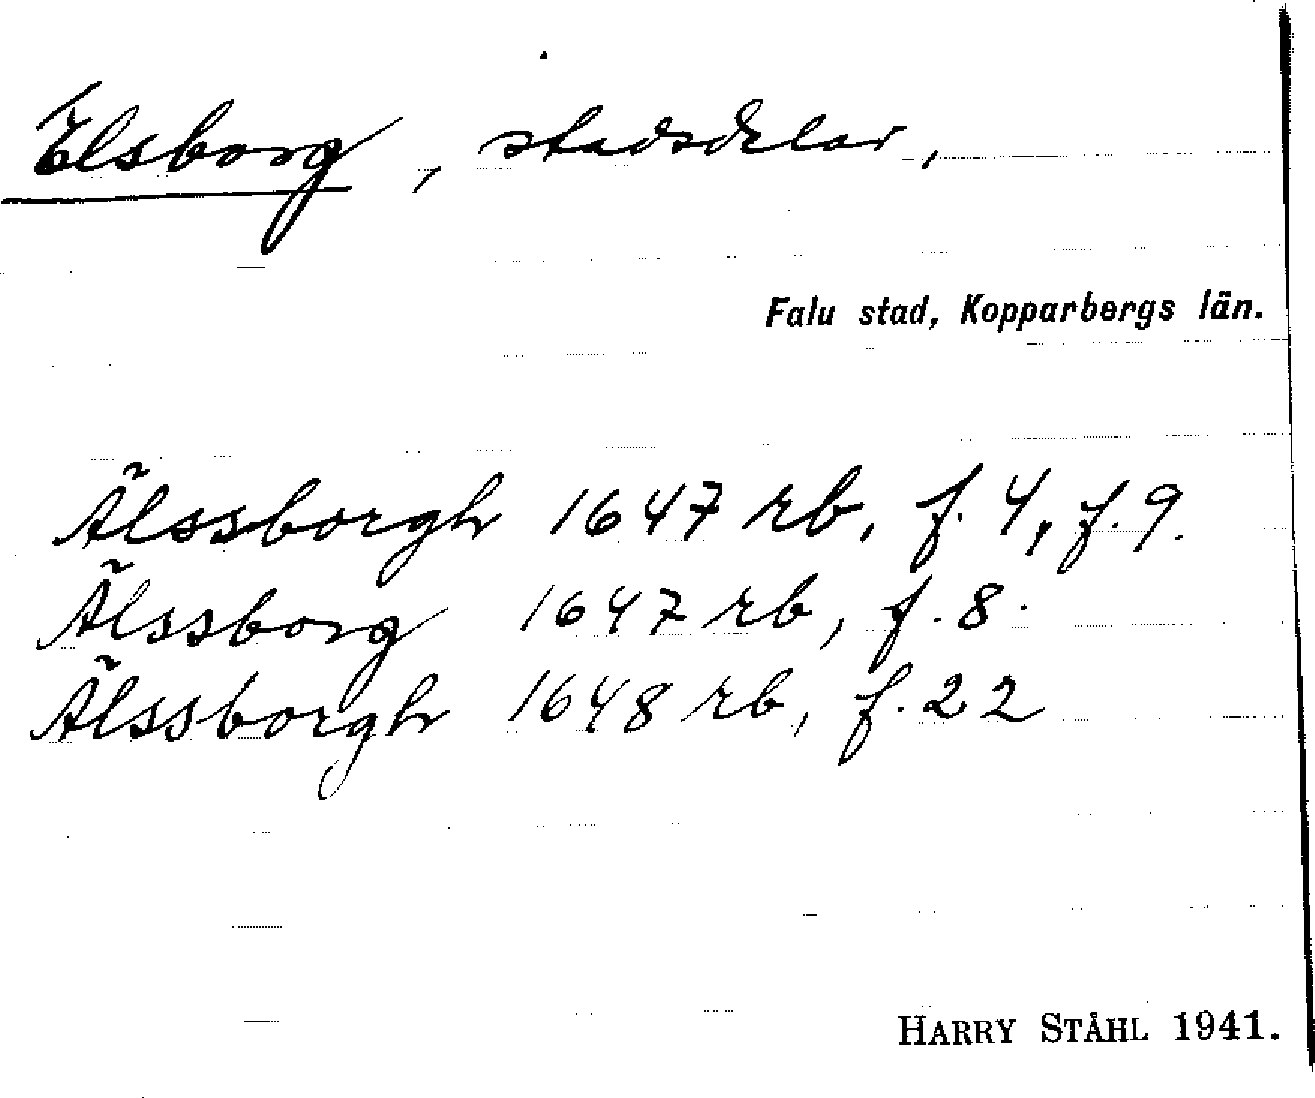 Elsborg, stadsdelar,
Falu stad, Kopparbergs län.
Älssborgh 1647 rb, f. 4, f. 9.
Älssborg 1647 rb, f. 8.
Älssborgh 1648 rb, f. 22
HARRY STÅHL 1941.